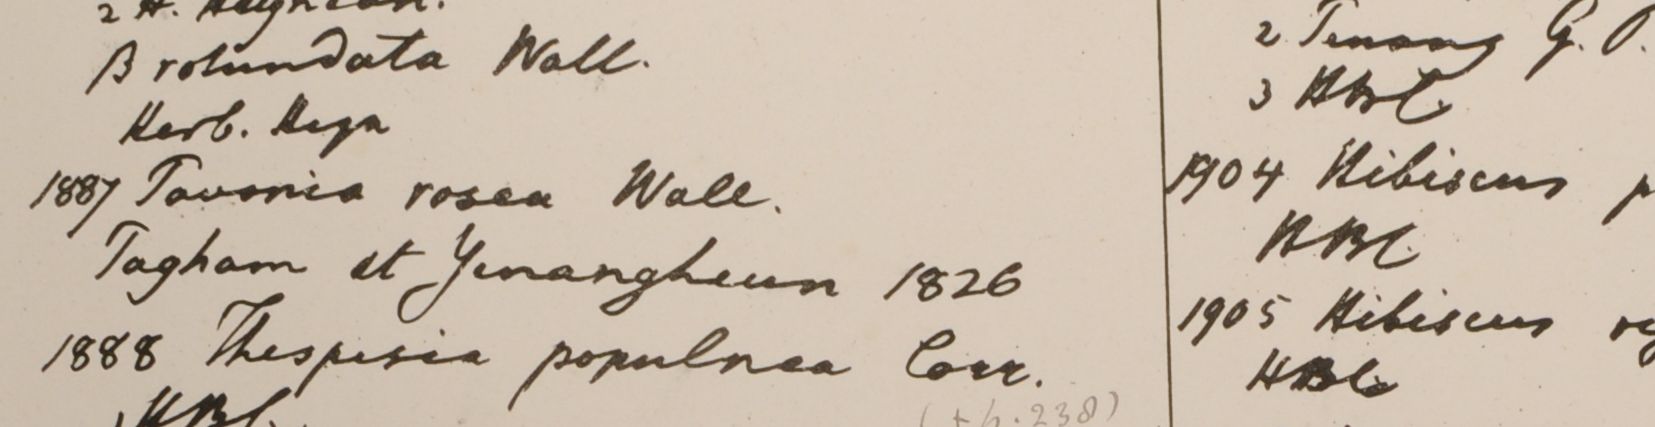 2 H. Heynean.
β rotundata Wall.
Herb. Heyn
1887 Pavonia rosea Wall.
Tagham et Yenangheun 1826
1888 Thespesia populnea Corr.
HBC.
(+ p. 238)
2 Penang G. P.
3 HBC.
1904 Hibiscus
HBC
1905 Hibiscus
HBC